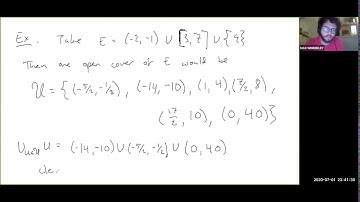 Ex. Take E = (-2, -1) ∪ [3, 7] ∪ {9}
Then an open cover of E would be
U = {(-5/2, -1/2), (-14, -10), (1, 4), (7/2, 8),
(17/2, 10), (0, 40)}
∪ U = (-14, -10) ∪ (-5/2, -1/2) ∪ (0, 40)
Cle
2020-07-01 23:41:30